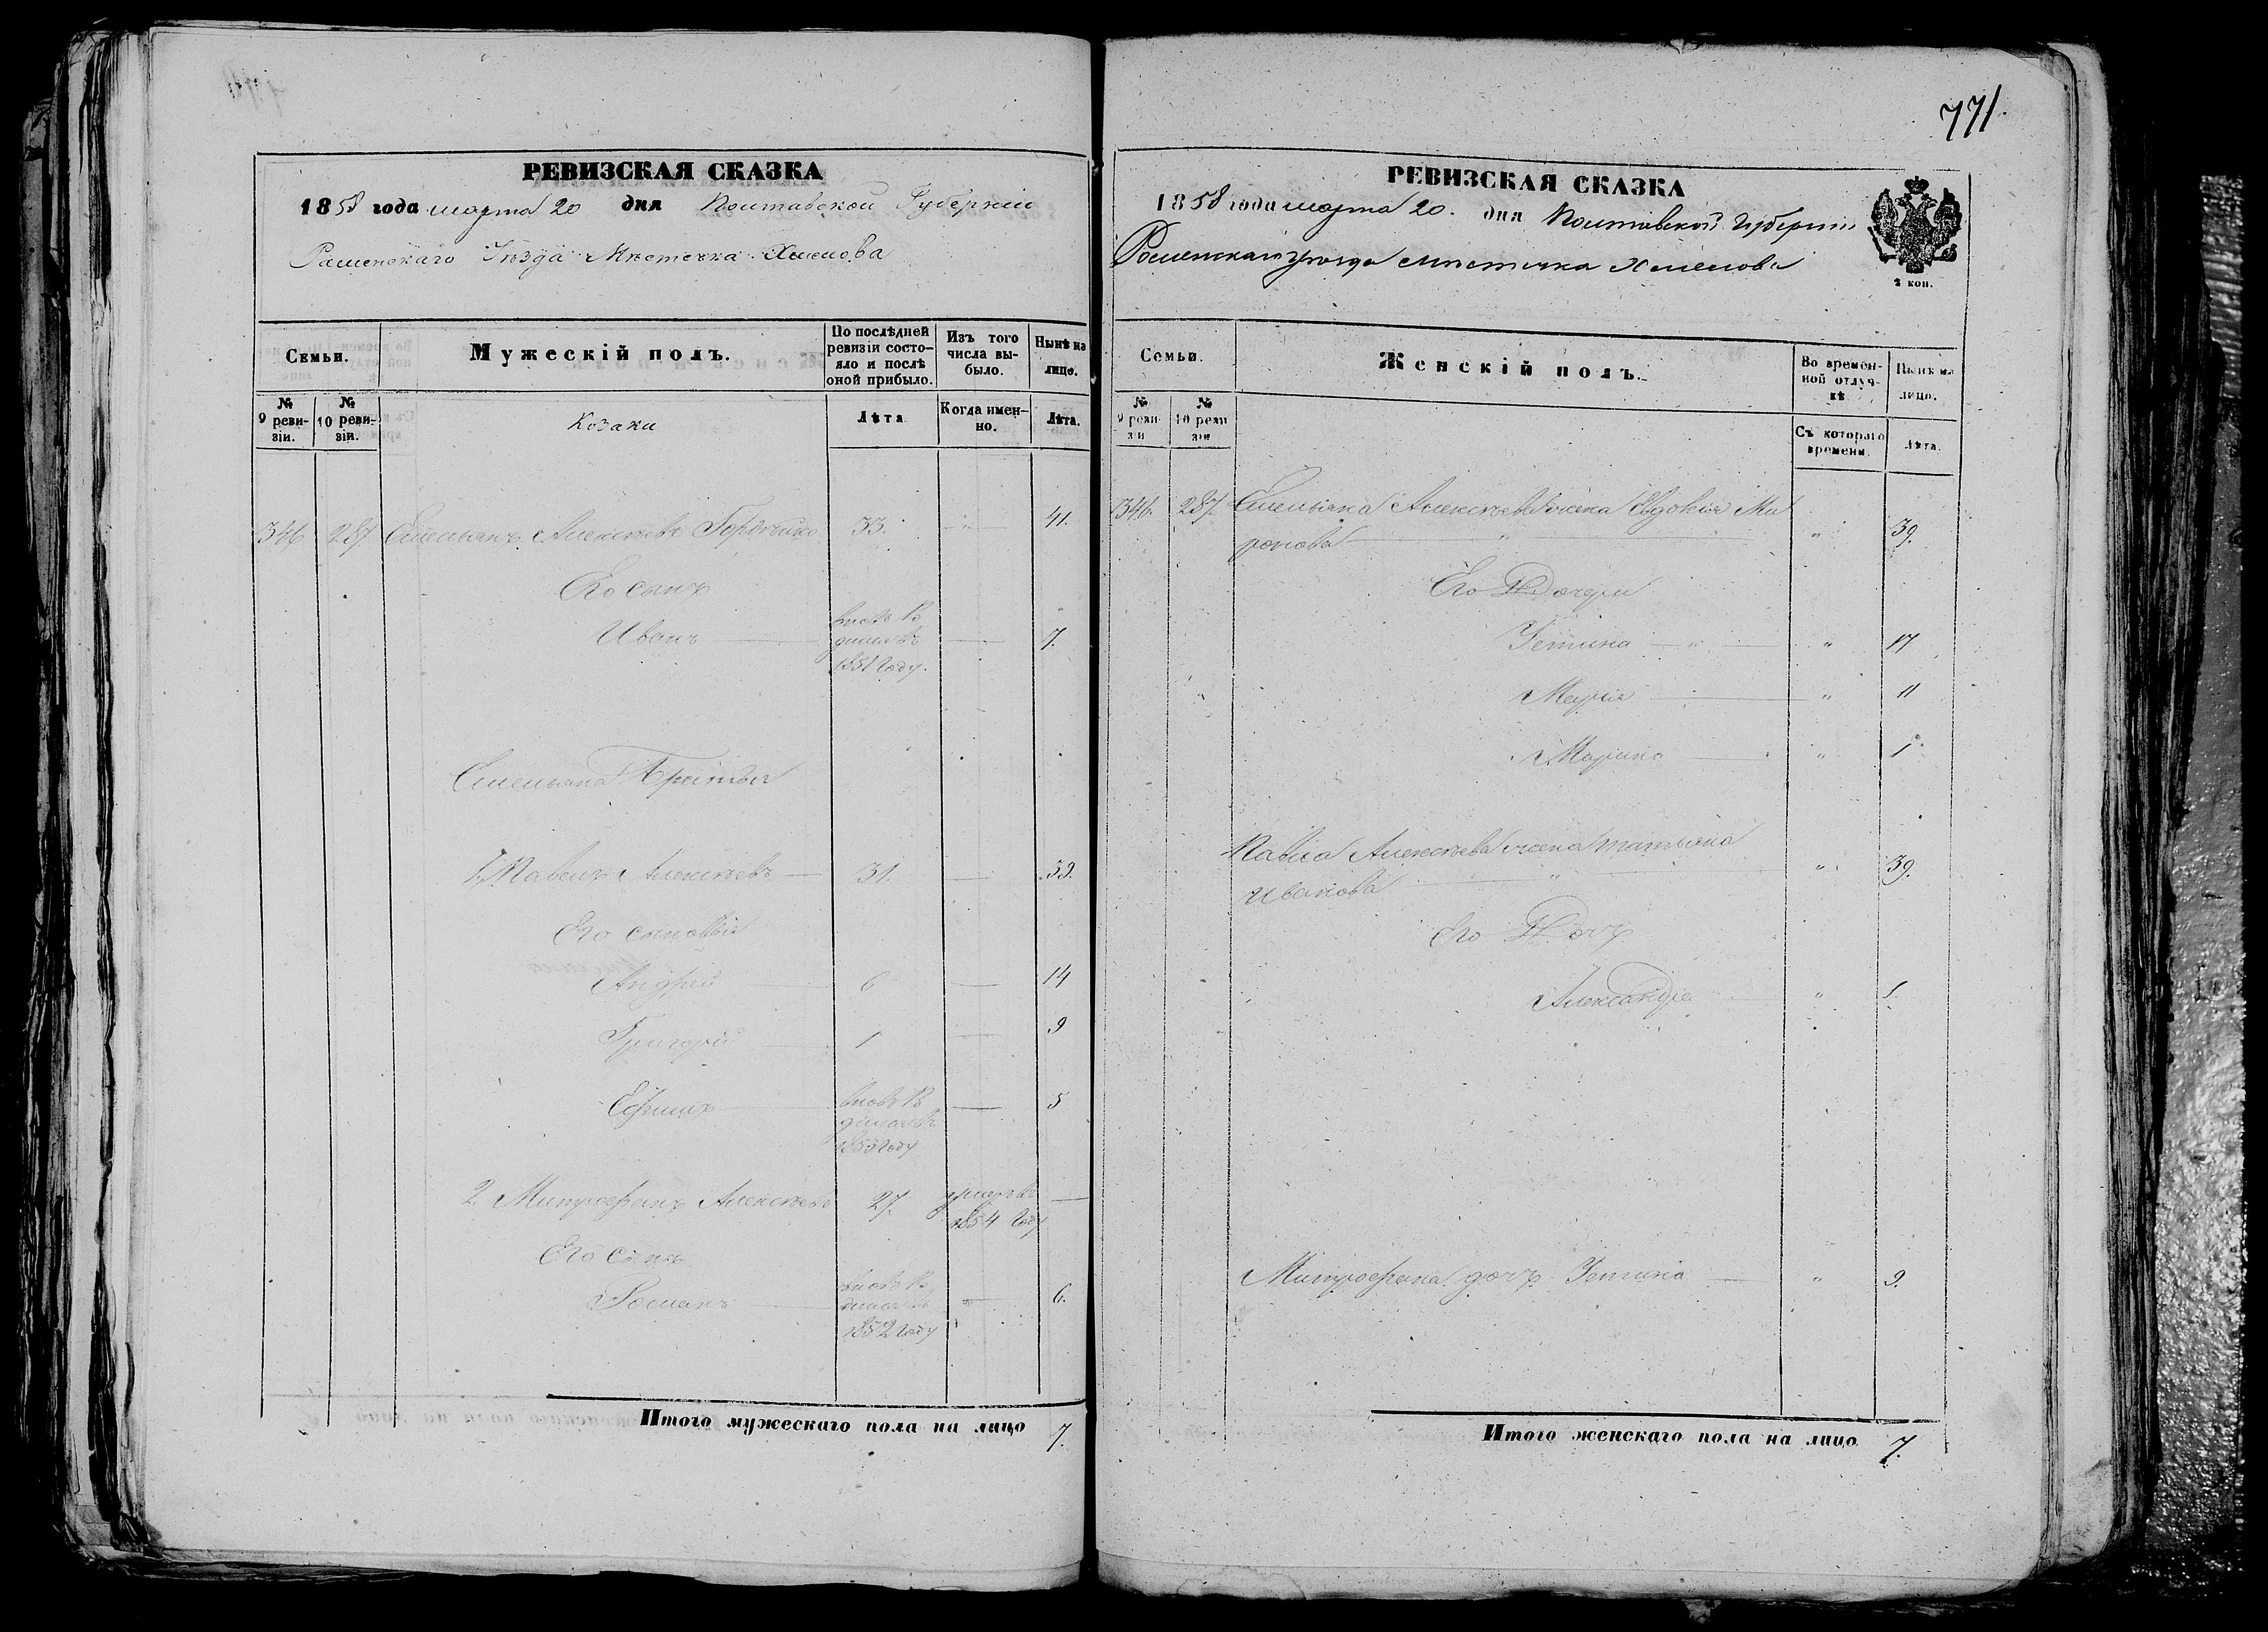 РЕВИЗСКАЯ СКАЗКА
1858 года марта 20 дня Полтавской Губерніи
Роменскаго Уезда Местечка Хмелова
Семьи.
Мужескій полъ.
По послѣдней ревизіи состояло и послѣ оной прибыло.
Изъ того числа выбыло.
Нынѣ на лицо.
№ 9 ревизіи.
№ 10 ревизіи.
Козаки
Лѣта
Когда именно.
Лѣта.
346 287 Емельянъ Алексѣевъ 33. 41.
Его сынъ
Иванъ 7.
1851 году.
Емельяна Братья
1. Павелъ Алексѣевъ 31. 39.
Его сыновья
Андрей 6 14
Григорій 1 9
Ефимъ 5
1853 году
2 Митрофанъ Алексѣевъ 27. умеръ въ
1854 году
Его сынъ
Романъ 6.
1852 году
Итого мужескаго пола на лицо 7.
771.
РЕВИЗСКАЯ СКАЗКА
1858 года марта 20. дня Полтавской Губерніи
Роменскаго уезда местечка Хмелова
2 коп.
Семьи.
Женскій полъ.
Во временной отлучкѣ
Нынѣ на лицо.
№ 9 ревизіи
№ 10 ревизіи
Съ котораго времени.
Лѣта.
346. 287. Емельяна Алексѣева жена Евдокія Ми
ронова " " 39.
Его Дочери
Устина " " 17
Марія " 11
Марина " 1
Павла Алексѣева жена Татьяна
Иванова " " 39.
Его Дочь
Александра "
Митрофана дочь Устина " 9.
Итого женскаго пола на лицо 7.